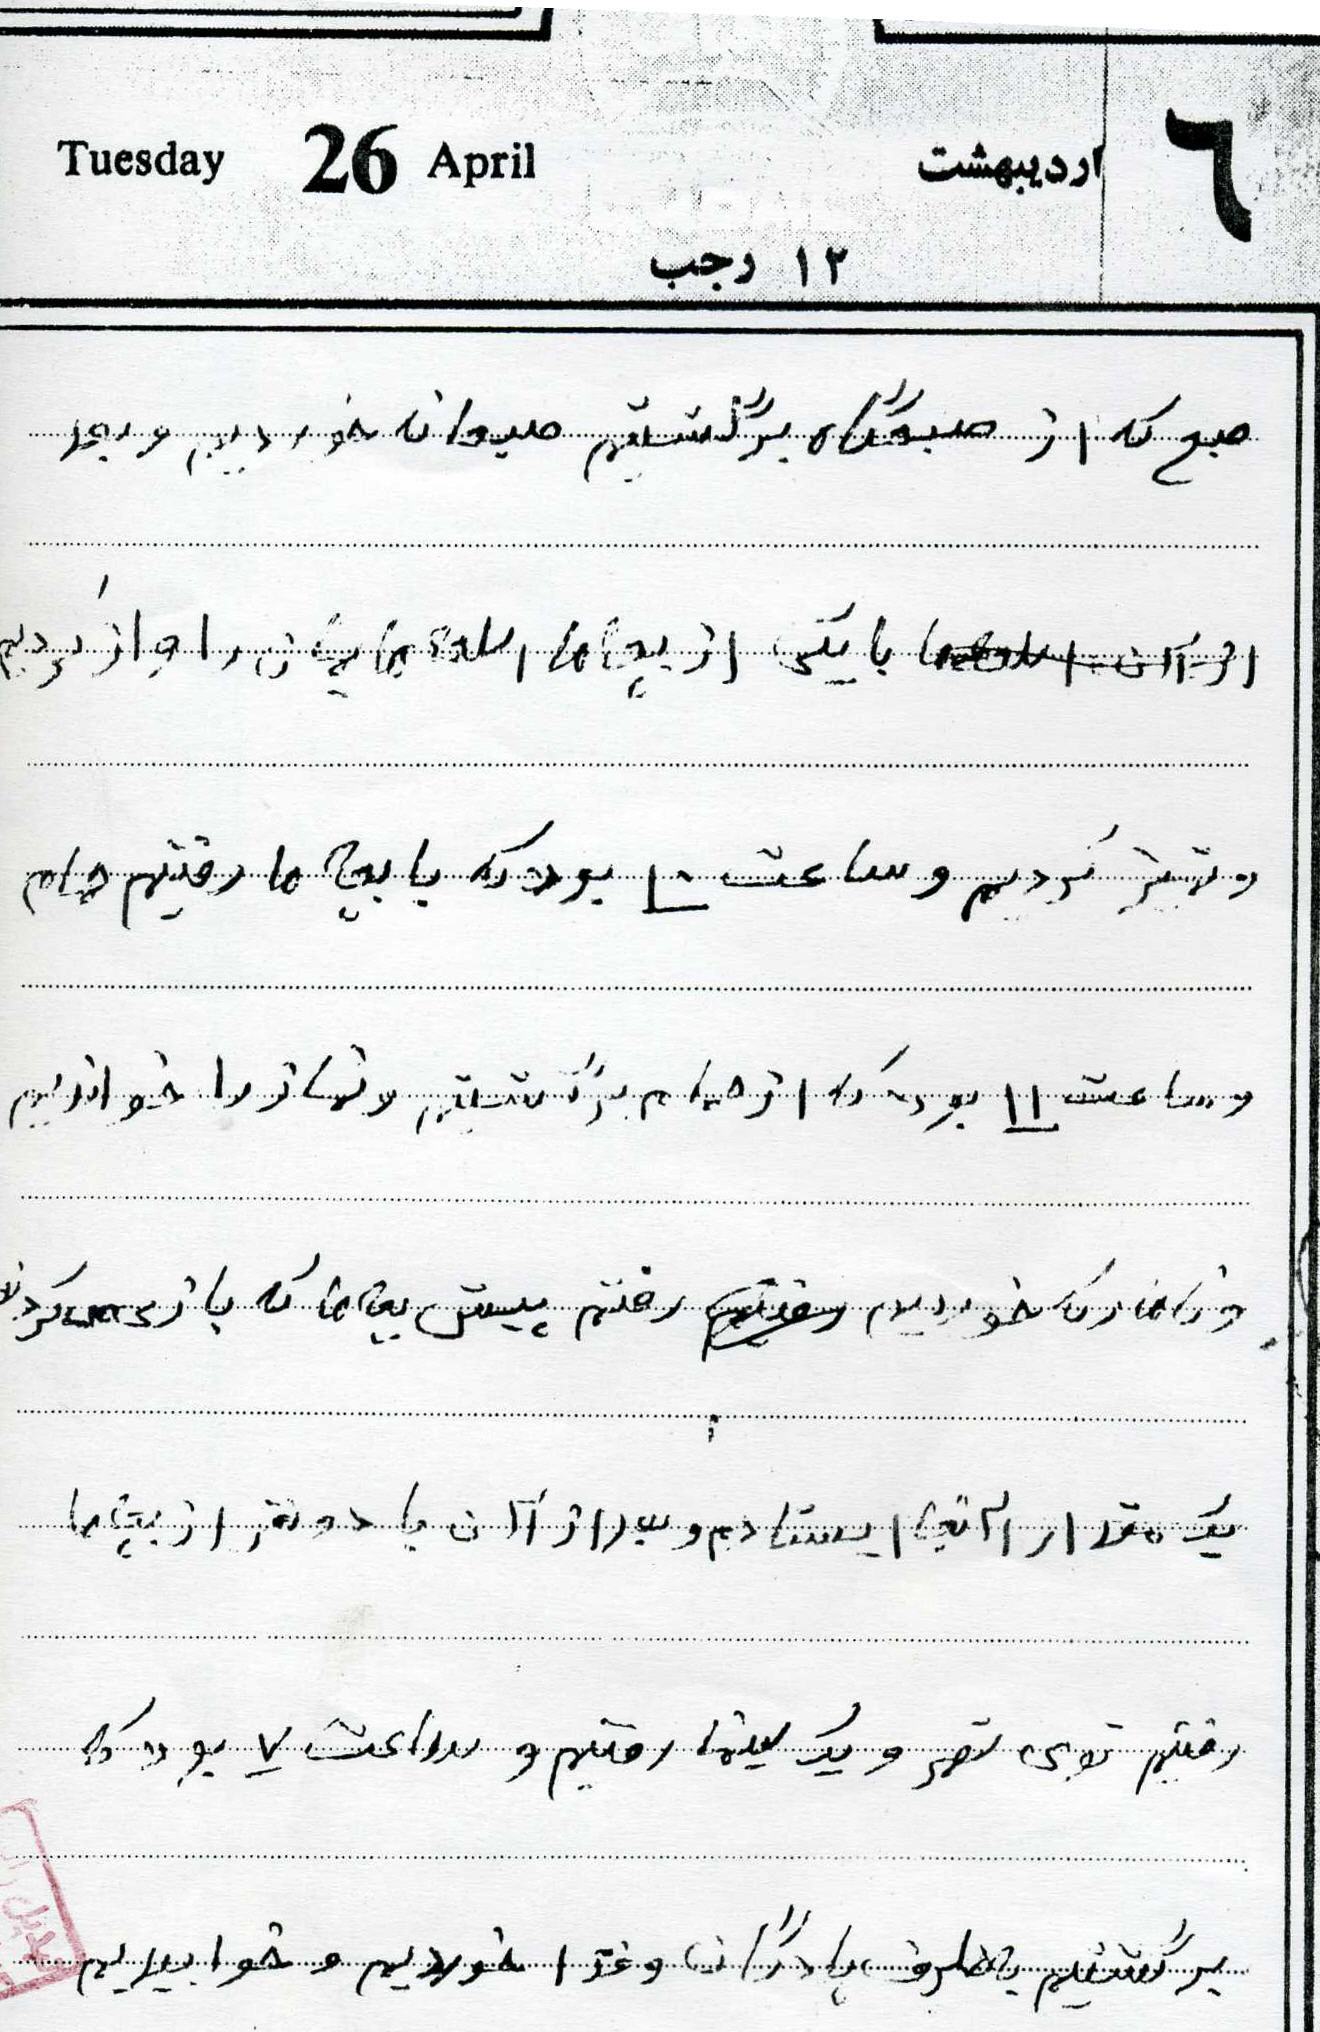 Tuesday 26 April ٦ اردیبهشت
١٢ رجب
صبح که از صبحگاه برگشتیم صبحانه خوردیم و بعد
از آن اسلحه‌ها با یکی از بچه‌ها اسلحه‌هایمان را باز کردیم
و تمیز کردیم و ساعت ۱۰ بود که با بچه‌ها رفتیم حمام
و ساعت ۱۱ بود که از حمام برگشتیم و نماز را خواندیم
و ناهار که خوردیم رفتیم رفتم پیش بچه‌ها که بازی می‌کردند
یک مقدار آنجا ایستادم و بعد از آن با دو نفر از بچه‌ها
رفتیم توی شهر و یک سینما رفتیم و ساعت ۷ بود که
برگشتیم بطرف پادگان و غذا خوردیم و خوابیدیم